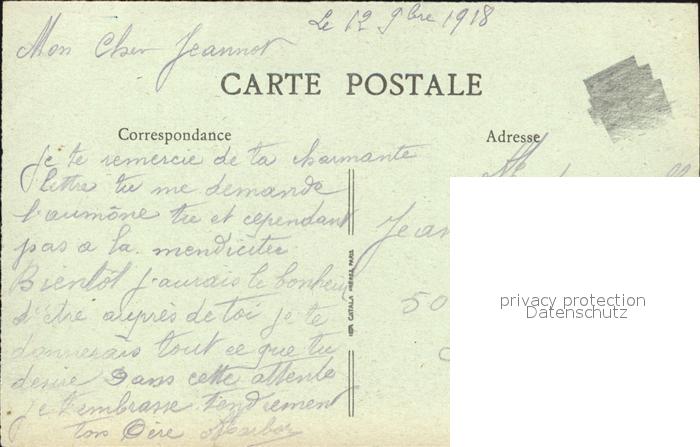 Le 12 9bre 1918
Mon Cher Jeannot
CARTE POSTALE
Correspondance
Adresse
je te remercie de ta charmante
lettre tu me demande
l'aumône tu et cependant
pas a la mendicitee
Bientôt j'aurais le bonheur
d'être auprès de toi je te
donnerais tout ce que tu
desire Dans cette attente
je t'embrasse tendrement
ton Père
Jean
50
IMP. CATALA FRERES, PARIS
privacy protection
Datenschutz